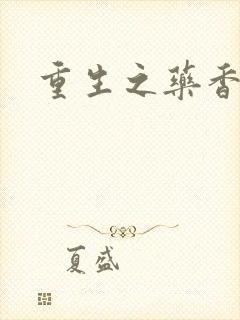 重生之药香
夏盛